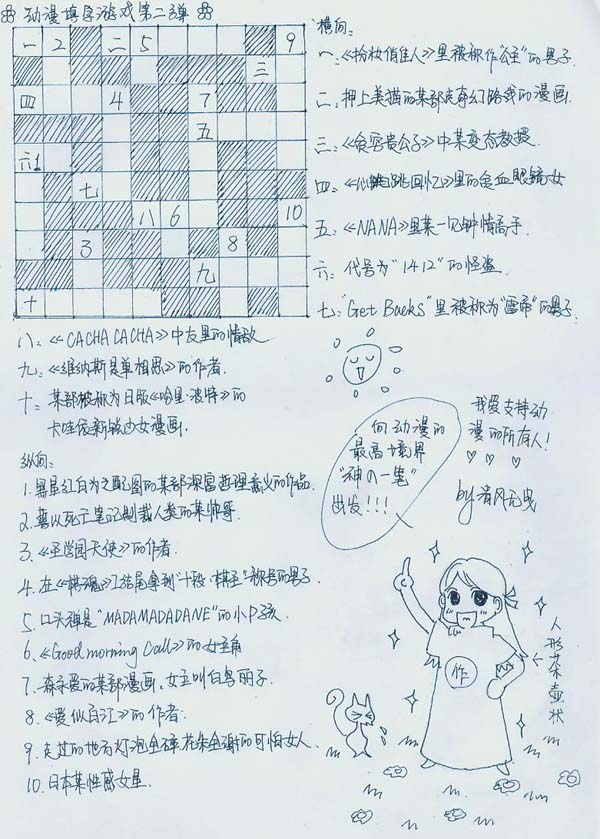 动漫填字游戏第二弹
一 2 二 5 9
三
四 4 7
五
六1
七
八 6 10
3 8
九
十
横向:
一、《扮妆俏佳人》里被称作"公主"的男子
二、押上美猫的某部走奇幻路线的漫画.
三、《贪婪贵公子》中某变态教授.
四、《心跳回忆》里的贫血眼镜女
五、《NANA》里某一见钟情高手.
六、代号为"1412"的怪盗.
七、"Get Backs"里被称为"雷帝"的男子.
八、《CACHA CACHA》中友里的情敌.
九、《维纳斯是单相思》的作者.
十、某部被称为日版《哈里·波特》的
卡哇依新锐少女漫画.
纵向:
1.黑星红白为之配图的某部深富哲理意义的作品.
2.喜以死亡笔记制裁人类的某帅哥.
3.《圣学园天使》的作者.
4.在《棋魂》结尾拿到"十段""棋圣"称号的男子.
5.口头禅是"MADAMADADANE"的小P孩.
6.《Good morning Call》的女主角
7.森永爱的某部漫画,女主叫白鸟丽子.
8.《爱似百汇》的作者.
9.走过的地方灯泡全碎花朵全谢的可怕女人.
10.日本某性感女星.
向动漫的
最高境界
"神の一笔"
出发!!!
我爱支持动
漫的所有人!
by清风无曳
作
人形茶壶状